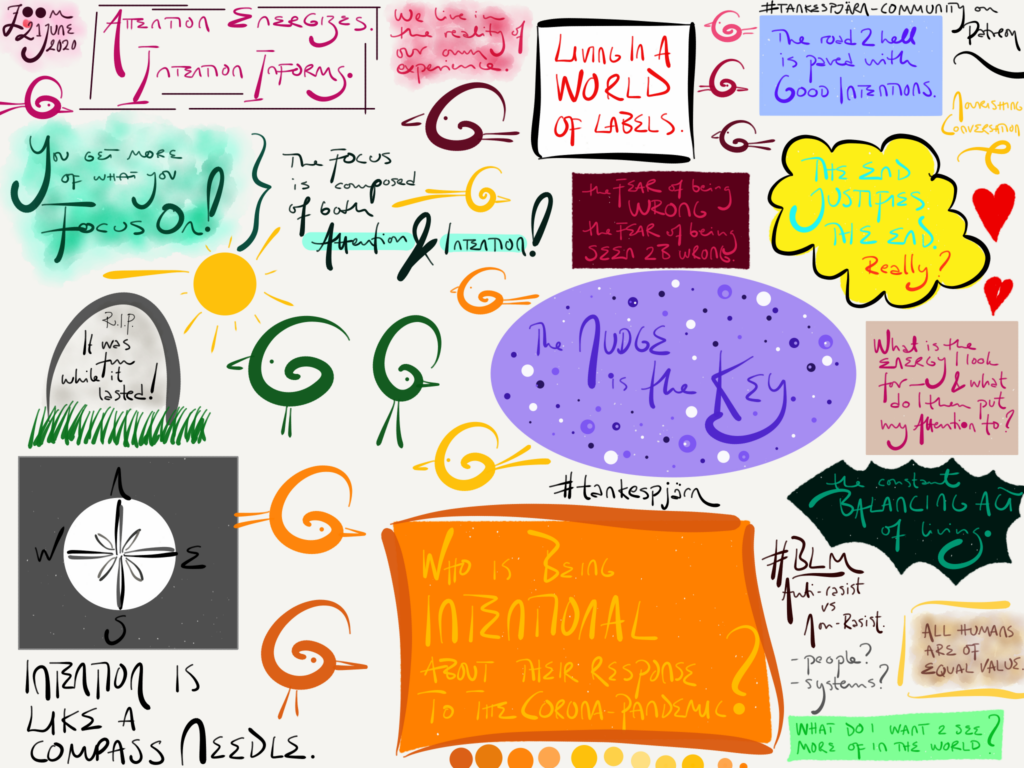 Zoom
21 June
2020
Attention Energizes.
Intention Informs.
We live in
the reality of
our own
experience.
Living In A
World
Of Labels.
#tankespjärn-community on
Patreon
The road 2 hell
is paved with
Good Intentions.
Nourishing
Conversation
You get more
of what you
Focus On!
The Focus
is composed
of both
Attention & Intention!
the FEAR of being
WRONG
the FEAR of being
SEEN 2B WRONG.
The End
Justifies
The End.
Really?
R.I.P.
It was
fun
while it
lasted!
The Nudge
is the Key
What is the
ENERGY I look
for - & what
do I then put
my Attention to?
#tankespjärn
N
W E
S
Intention is
like a
compass needle.
Who is Being
Intentional
about their response
to the Corona-Pandemic?
the constant
BALANCING ACT
of living.
#BLM
Anti-rasist
vs
Non-Rasist.
- people?
- systems?
All humans
are of
equal value.
What do I want 2 see
more of in the world?